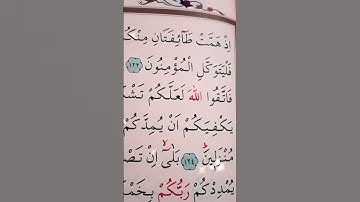 اِذْ هَمَّتْ طَٓائِفَتَانِ مِنْكُ
فَلْيَتَوَكَّلِ الْمُؤْمِنُونَ ﴿١٢٢﴾
فَاتَّقُوا اللّٰهَ لَعَلَّكُمْ تَشْكُ
يَكْفِيَكُمْ اَنْ يُمِدَّكُمْ
مُنْزَلٖينَ ﴿١٢٤﴾ بَلٰٓى اِنْ تَصْ
يُمْدِدْكُمْ رَبُّكُمْ بِخَمْ